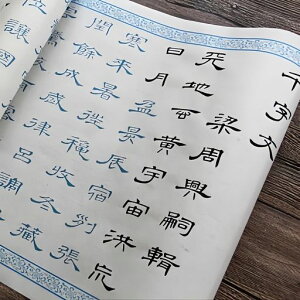 千字文
梁周興嗣輯
天地玄黃宇宙洪荒
日月盈昃辰宿列張
寒來暑往秋收冬藏
閏餘成歲律呂調
讓國